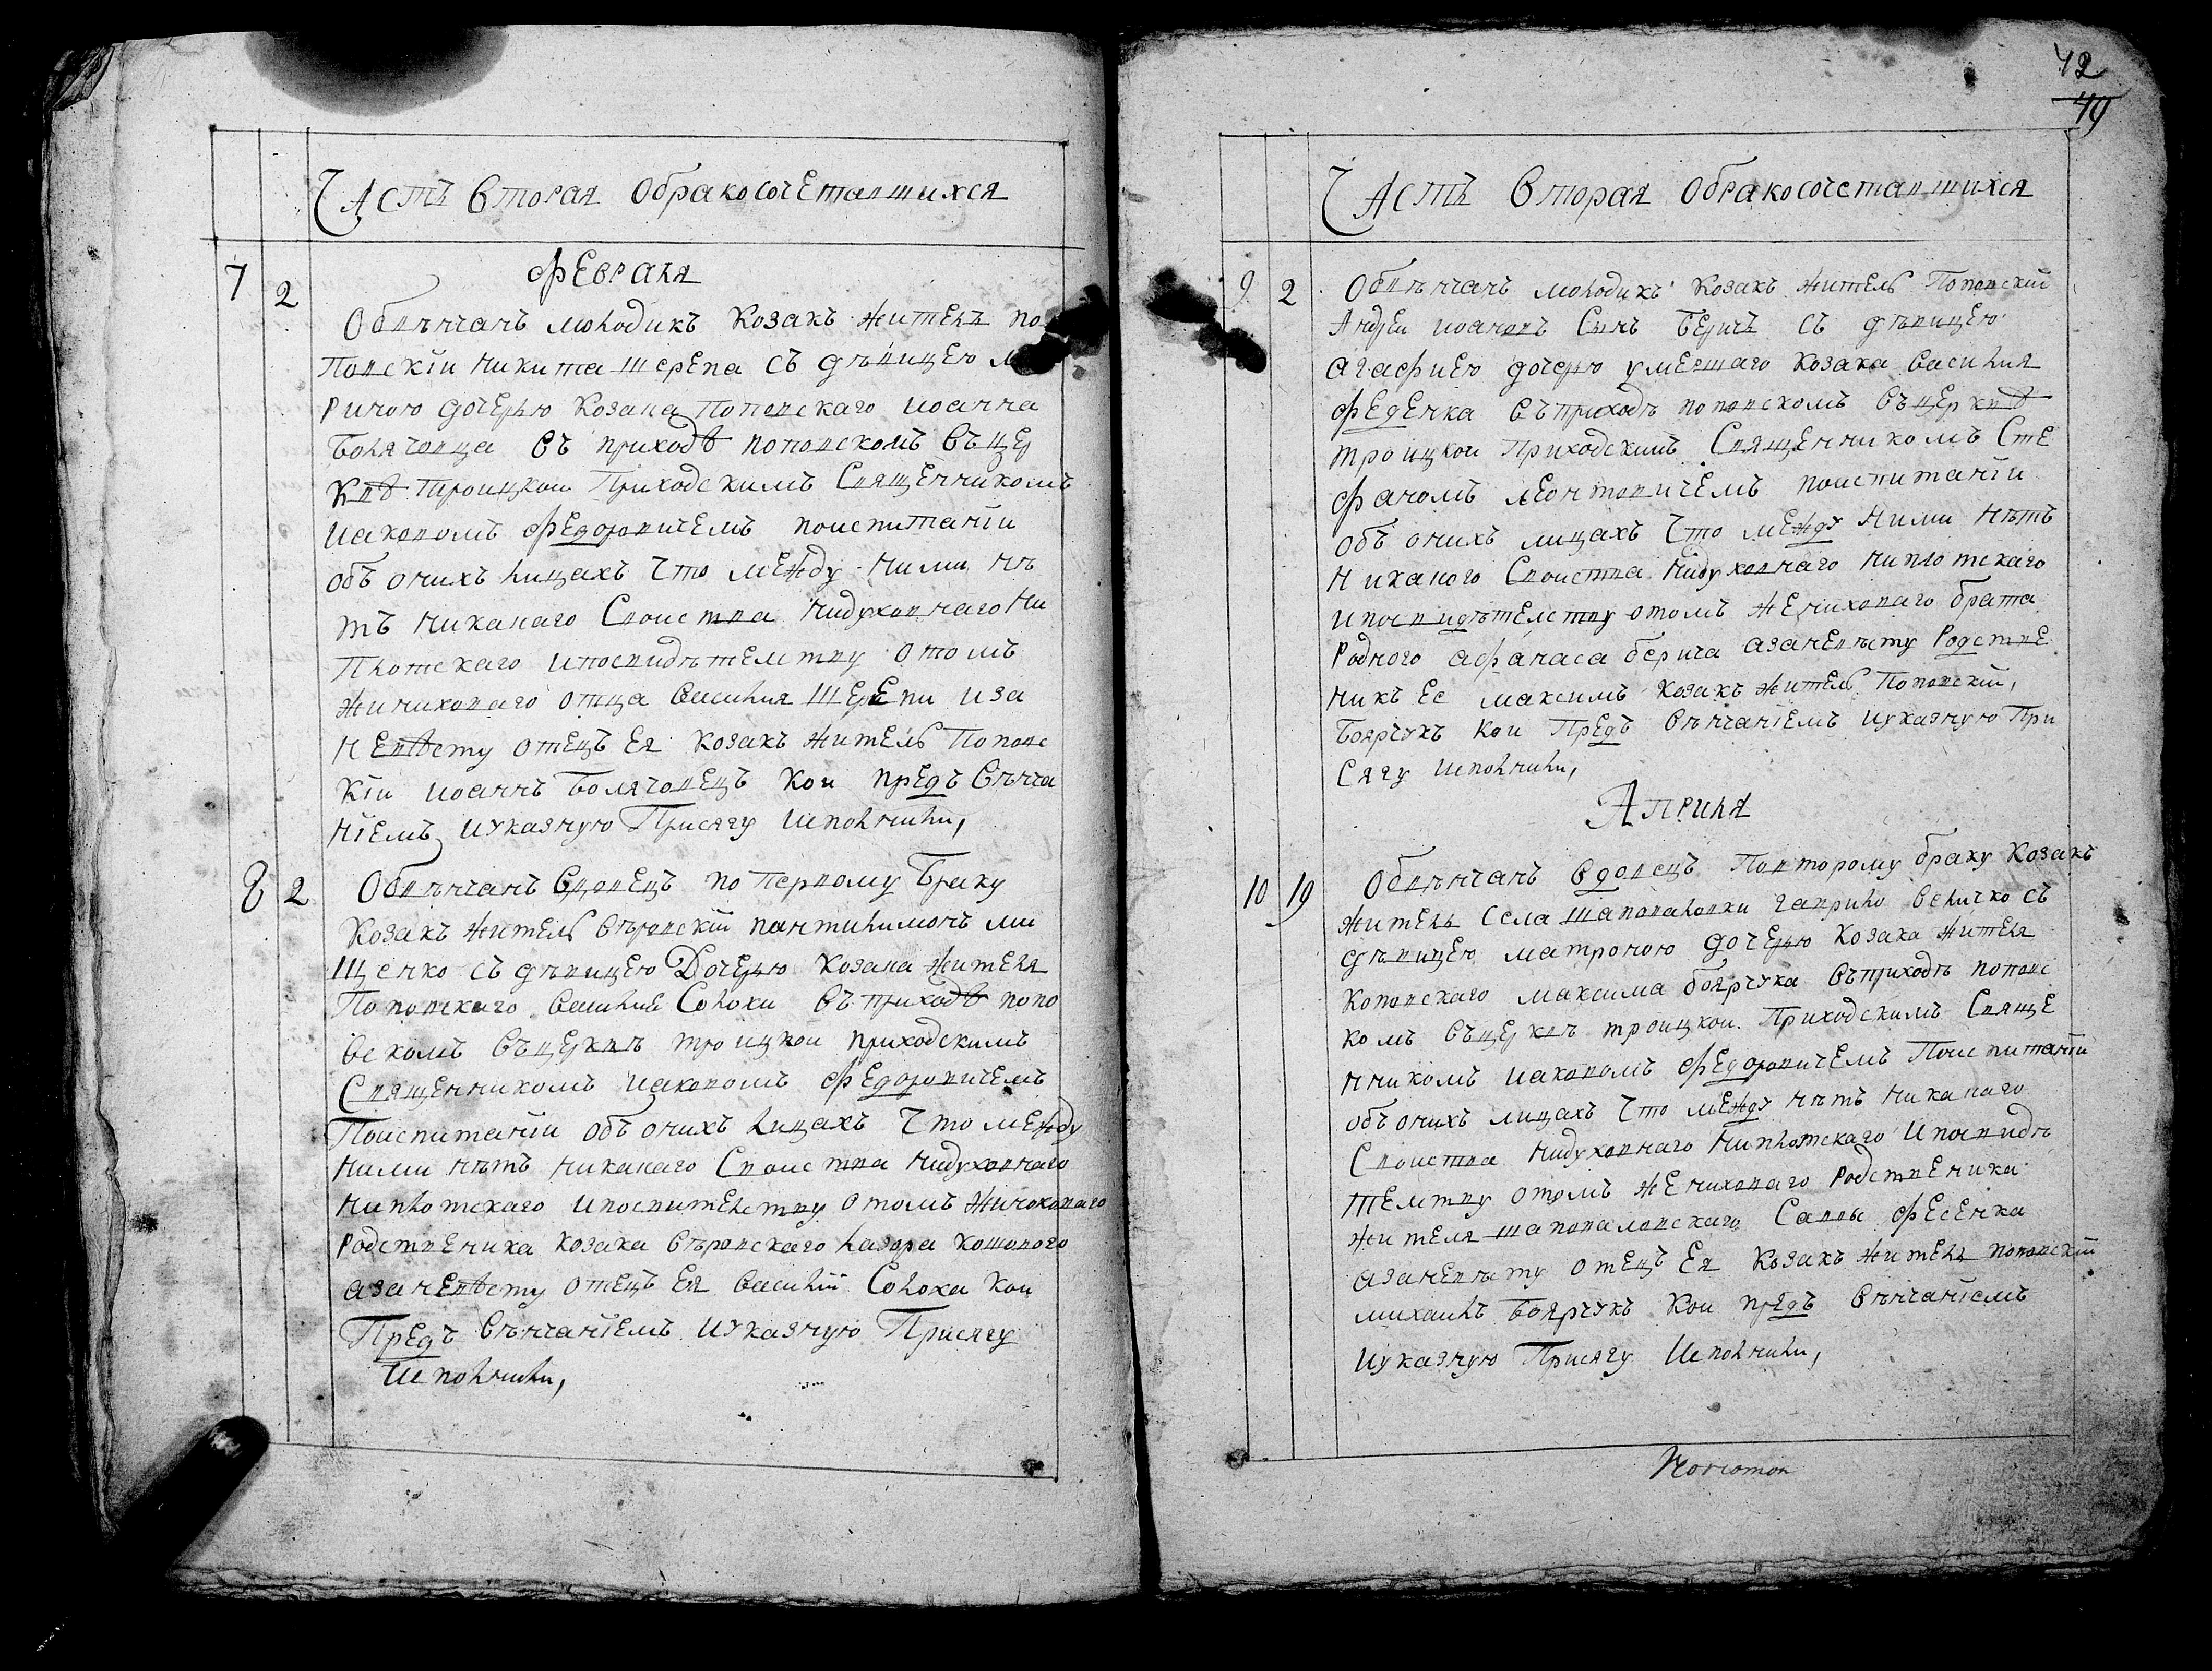 Часть вторая обракосочетавшихся
Февраля
7 2 Обвѣнчанъ молодикъ козакъ житель по
повскїи никита шерепа съ дѣвицею м
риною дочерью козака поповскаго иоанна
болячовца въ приходѣ поповскомъ въ цер
квѣ троицкои приходскимъ священникомъ
иаковомъ федоровичемъ поиспитанїи
объ онихъ лицахъ что между ними нѣ
тъ никакаго своиства нидуховнаго ни
плотскаго ипосвидѣтелству отомъ
жиниховаго отца василия шерепи иза
невѣсту отецъ ея козакъ житель Поповс
кїи иоаннъ болячовецъ кои предъ вѣнча
нїемъ иуказную Присягу исполнили,
8 2 Обвѣнчанъ вдовецъ по первому браку
козакъ житель вѣровскїи пантилимонъ ми
щенко съ дѣвицею Дочерью козака жителя
Поповскаго василия Солохи въ приходѣ попо
вскомъ въ церквѣ троицкои приходскимъ
Священникомъ иаковомъ федоровичемъ
Поиспитанїи объ онихъ лицахъ что между
ними нѣтъ никакаго своиства нидуховнаго
ниплотскаго ипосвителству отомъ жиноховаго
родственика козака вѣровскаго лазора кошового
азаневѣсту отецъ ея василїй Солоха кои
Предъ вѣнчанїемъ иуказную Присягу
исполнили,
42
49
Часть вторая обракосочетавшихся
9 2 Обвѣнчанъ молодикъ козакъ житель Поповскїй
Андреи иоановъ Синъ берычъ съ дѣвицею
агафиею дочерю умершаго козака василия
феденка въ приходѣ поповскомъ въ церквѣ
троицкои Приходскимъ Священникомъ Сте
фаномъ леонтовичемъ поиспитанїи
объ онихъ лицахъ что между ними нѣтъ
никакого своиства нидуховнаго ниплотскаго
ипосвидѣтелству отомъ жениховаго брата
родного афанаса берича азаневѣсту родстве
никъ ее максимъ козакъ житель Поповскїй,
боярчукъ кои Предъ вѣнчанїемъ иуказную При
сягу исполнили,
Априля
10 19 Обвѣнчанъ вдовецъ Повторому браку козакъ
житель села шаповаловки гаврило величко съ
дѣвицею матроною дочерью козака жителя
поповскаго максима боярчука въ приходѣ поповс
комъ въ церквѣ троицкои Приходскимъ Свяще
нникомъ иаковомъ федоровичемъ Поиспитанїи
объ онихъ лицахъ что между нѣтъ никакаго
своиства нидуховнаго ниплотскаго ипосвидѣ
телству отомъ жениховаго родственика
жителя шаповаловскаго Саввы фесенка
азаневѣсту отецъ ея козакъ житель поповскїй
михаилъ боярчукъ кои предъ вѣнчанїемъ
иуказную Присягу исполнили,